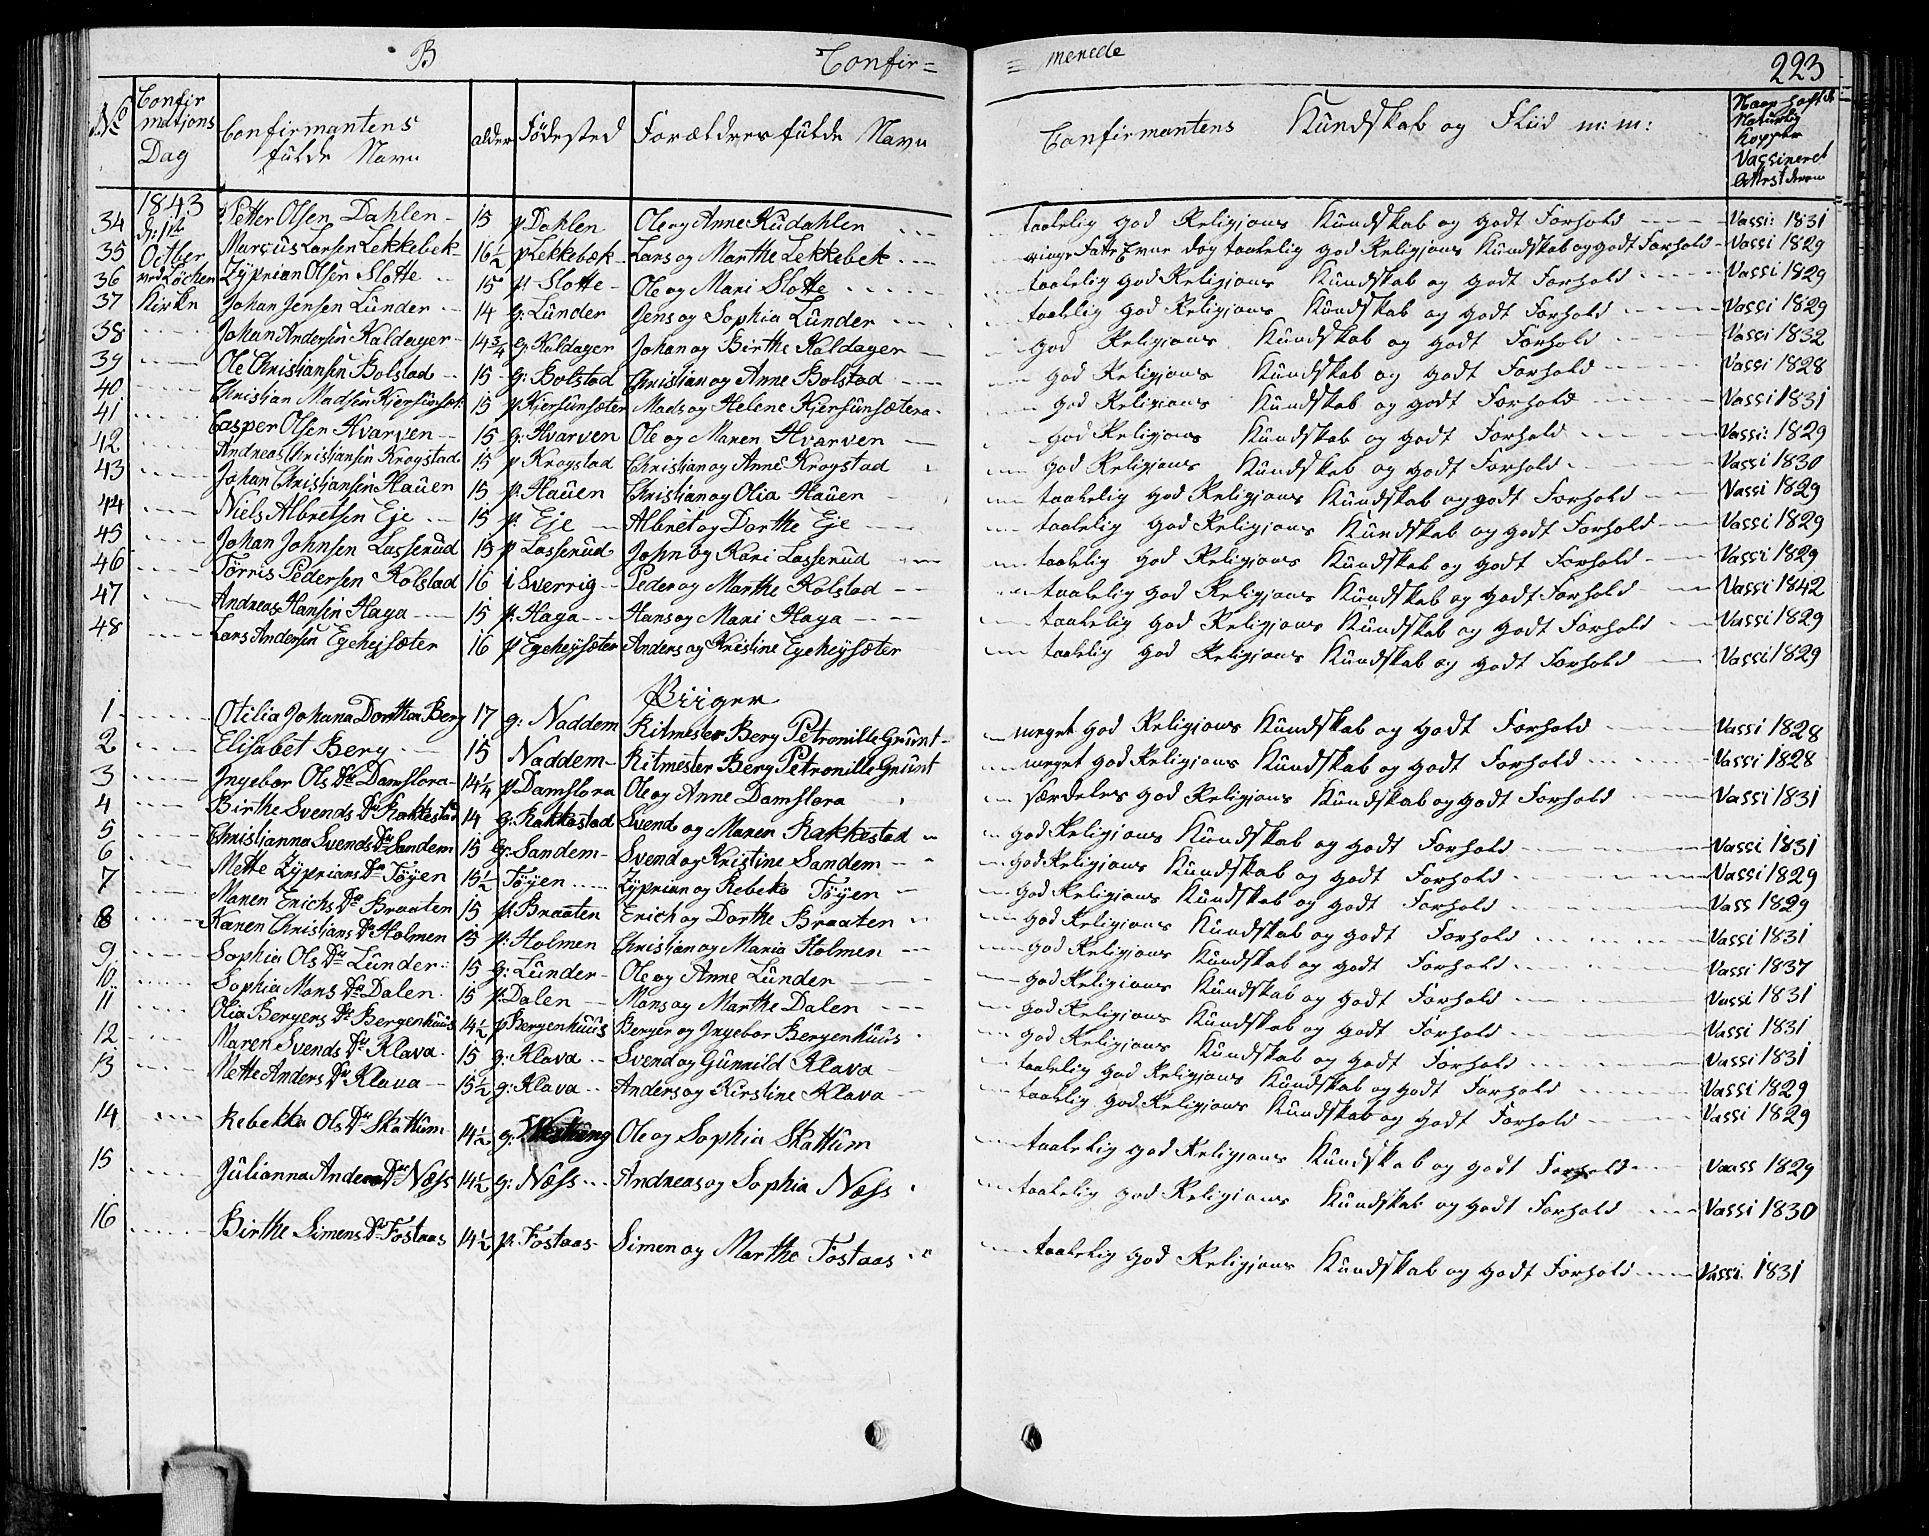 B Confir= = merede 223
No Confirmatjons Dag Confirmantens fulde Navn alder Fødested Forældres fulde Navn Confirmantens Kundskab og Fliid m: m: Naturlig Kopper Vassineret Attest derom
1843
34 d: 1ste Petter Olsen Dahlen 15 p Dahlen Ole og Anne Kudahlen taalelig god Religjons Kundskab og godt Forhold Vassi: 1831
35 Octber Marcus Larsen Lekkebek 16½ p Lekkebæk Lars og Marthe Lekkebek ringe Fatte Evne dog taalelig god Religjons Kundskab og godt Forhold Vassi 1829
36 ved Løchen Zyprian Olsen Slotte 15 p Slotte Ole og Mari Slotte taalelig god Religjons Kundskab og godt Forhold Vassi 1829
37 Kirke Johan Jensen Lunder 14 g: Lunder Jens og Sophia Lunder taalelig god Religjons Kundskab og godt Forhold Vassi 1829
38 Johan Andersen Kaldager 14¾ g: Kaldager Johan og Birthe Kaldager god Religjons Kundskab og godt Forhold Vassi 1832
39 Ole Christiansen Bolstad 15 g: Bolstad Christian og Anne Bolstad god Religjons Kundskab og godt Forhold Vassi 1828
40 Christian Madsen Kjersunsæt 15 p Kjersunsæter Mads og Helene Kjersunsætera god Religions Kundskab og godt Forhold Vassi 1831
41 Casper Olsen Hvarven 15 g: Hvarven Ole og Maren Hvarven god Religjons Kundskab og godt Forhold Vassi: 1829
42 Andreas Christiansen Krogstad 15 p Krogstad Christian og Anne Krogstad god Religjons Kundskab og godt Forhold Vassi 1830
43 Johan Christjansen Hauen 15 p: Hauen Christjan og Olia Hauen taalelig god Religjons Kundskab og godt Forhold Vassi 1829
44 Niels Albretsen Eje 15 p: Eje Albret og Dorthe Eje taalelig god Religjons Kundskab og godt Forhold Vassi 1829
45 Johan Johnsen Lasserud 15 p Lasserud John og Kari Lasserud taalelig god Religjons Kundskab og godt Forhold Vassi 1829
46 Torris Pedersen Kolstad 16 i Sverrig Peder og Marthe Kolstad taalelig god Religjons Kundskab og godt Forhold Vassi 1842
47 Andreas Hansen Haga 15 p: Haga Hans og Mari Haga taalelig god Religjons Kundskab og godt Forhold Vassi 1829
48 Lars Andersen Egehejsæter 16 p Egehejsæter Anders og Kristine Egehejsæter taalelig god Religjons Kundskab og godt Forhold Vassi 1829
Piiger
1 Otilia Johana Dorthea Berg 17 g: Naddem Ritmester Berg Petronille Grunt meget god Religjons Kundskab og godt Forhold Vassi 1828
2 Elisabet Berg 15 Naddem Ritmester Berg Petronille Grunt meget god Religjons Kundskab og godt Forhold Vassi 1828
3 Ingebor Ols Dr Damslora 14¼ p Damslora Ole og Anne Damslora særdeles god Religjons Kundskab og godt Forhold Vassi 1831
4 Birthe Svends Dr Rakkestad 14 g: Rakkestad Svend og Maren Rakkestad god Religjons Kundskab og godt Forhold Vassi 1831
5 Christianna Svends Dr Sandem 15 g: Sandem Svend og Kristine Sandem god Religjons Kundskab og godt Forhold Vassi 1829
6 Mette Zyprians Dr Tøyen 15½ Tøyen Zyprian og Rebeka Tøyen god Religjons Kundskab og godt Forhold Vass 1829
7 Maren Erichs Dr Braaten 15 p: Braaten Erich og Dorthe Braaten god Religjons Kundskab og godt Forhold Vassi 1831
8 Karen Christians Dr Holmen 15 p: Holmen Christian og Maria Holmen god Religjons Kundskab og godt Forhold Vassi 1837
9 Sophia Ols Dr Lunder 15 g: Lunder Ole og Anne Lunder god Religions Kundskab og godt Forhold Vassi 1831
10 Sophia Mons Dr Dalen 15 p: Dalen Mons og Marthe Dalen god Religjons Kundskab og godt Forhold Vassi 1831
11 Olia Bergers Dr Bergenhuus 14½ p Bergenhuus Berger og Ingebor Bergenhuus god Religjons Kundskab og godt Forhold Vassi 1831
12 Maren Svends Dr Klava 15 g: Klava Svend og Gunnild Klava taalelig god Religjons Kundskab og godt Forhold Vassi 1829
13 Mette Anders Dr Klava 15½ g: Klava Anders og Kirstine Klava taalelig god Religjons Kundskab og godt Forhold Vassi 1829
14 Rebekka Ols Dr Skattum 14½ g: Ole og Sophia Skattum taalelig god Religjons Kundskab og godt Forhold Vaass 1829
15 Julianna Anders Dr Næss 14½ g: Næss Andreas og Sophia Næss taalelig god Religjons Kundskab og godt Forhold Vassi 1830
16 Birthe Simens Dr Fostaas 14½ p. Fostaas Simen og Marthe Fostaas taalelig god Religjons Kundskab og godt Forhold Vassi: 1831